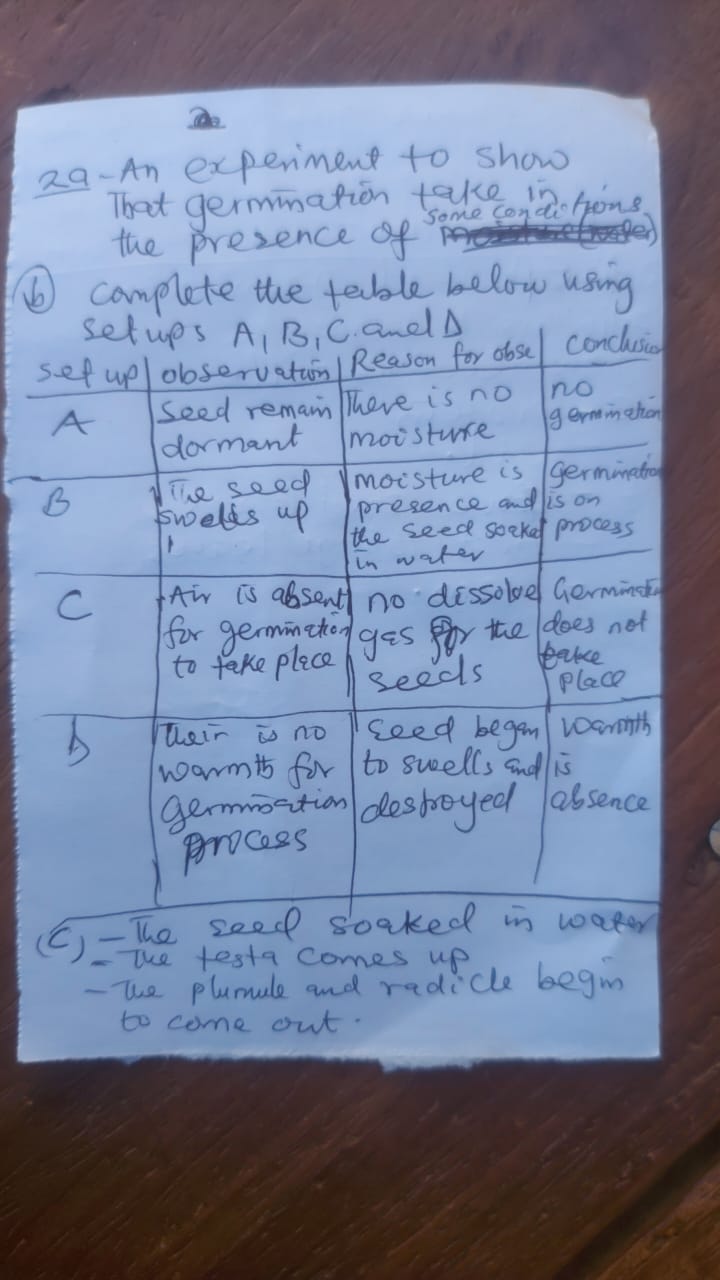 2a - An experiment to show
That germination take in
the presence of some conditions
(b) complete the table below using
set ups A, B, C. and D
set up | observation | Reason for obse | conclusion
A | Seed remain dormant | There is no moisture | no germination
B | The seed swells up | moisture is presence and the seed soaked in water | germination is on process
C | Air is absent for germination to take place | no dissolve gas for the seeds | Germination does not take place
D | Their is no warmth for germination process | Seed began to swells and destroyed | warmth is absence
(C) - The seed soaked in water
- The testa comes up
- The plumule and radicle begin
to come out.